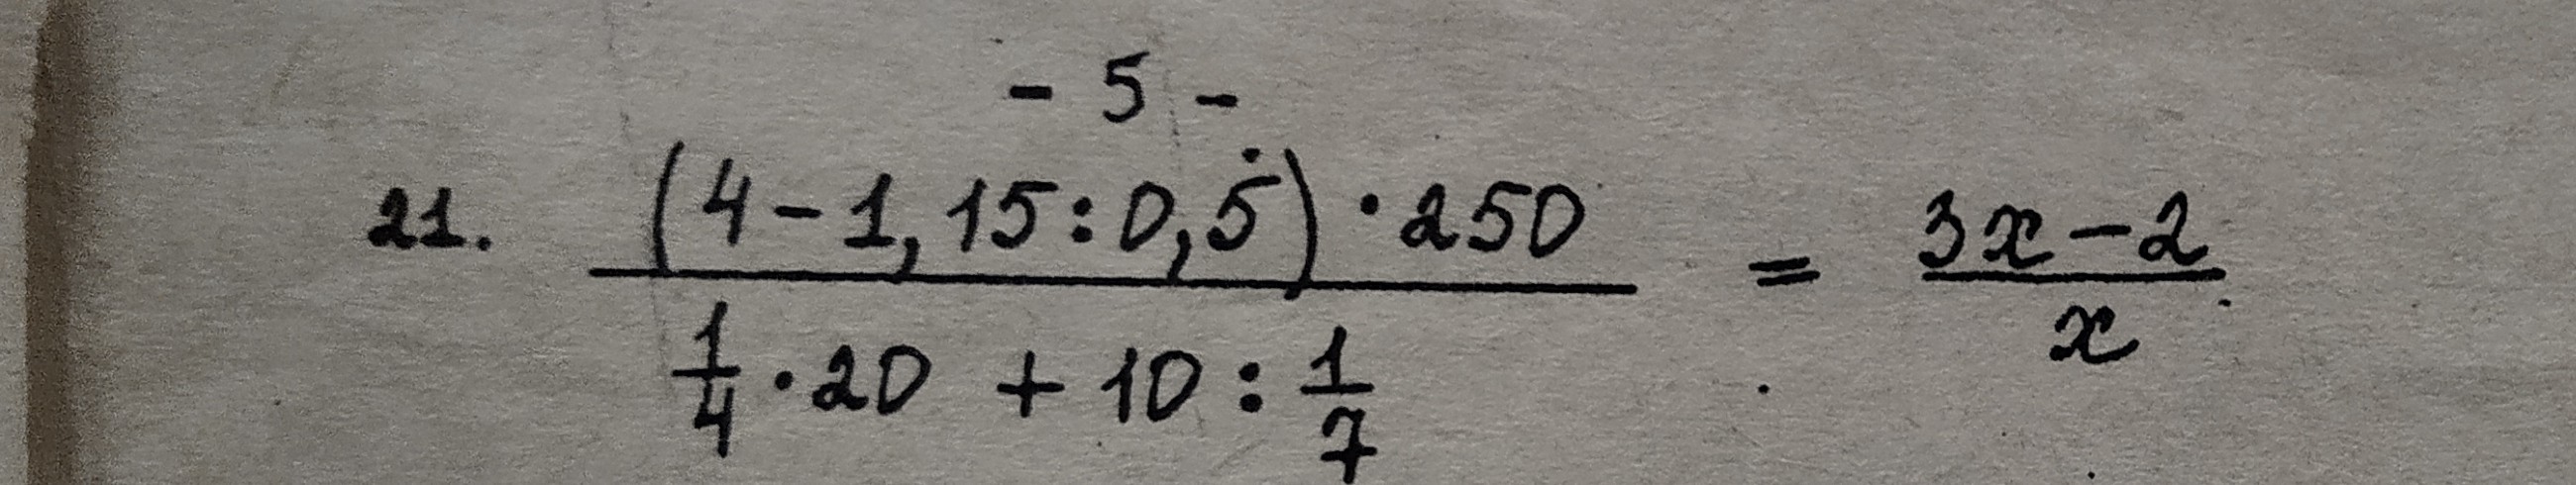 - 5 -
21. (4-1,15:0,5)·250 / (1/4·20 + 10:1/7) = (3x-2)/x